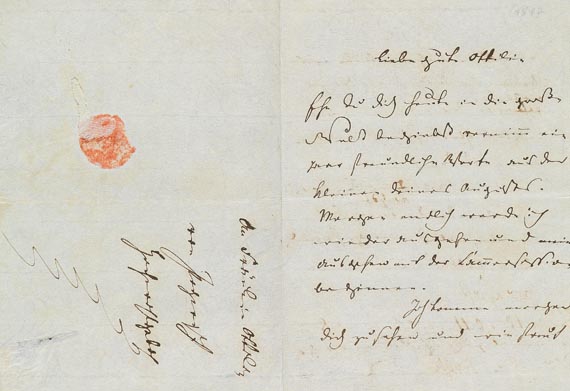 Liebe gute Ottilie
Ehe Du Dich heute in die große
Welt begiebst vernimm ein
paar freundliche Worte aus der
kleinen Deines Augusts.
Morgen endlich werde ich
wieder ausgehen und mein
Ausgehen mit der Cammersession
beginnen.
Ich komme morgen
Dich zu sehen und mein
An Fräulein Ottilie
von Pogwisch
Hochwohlgeb